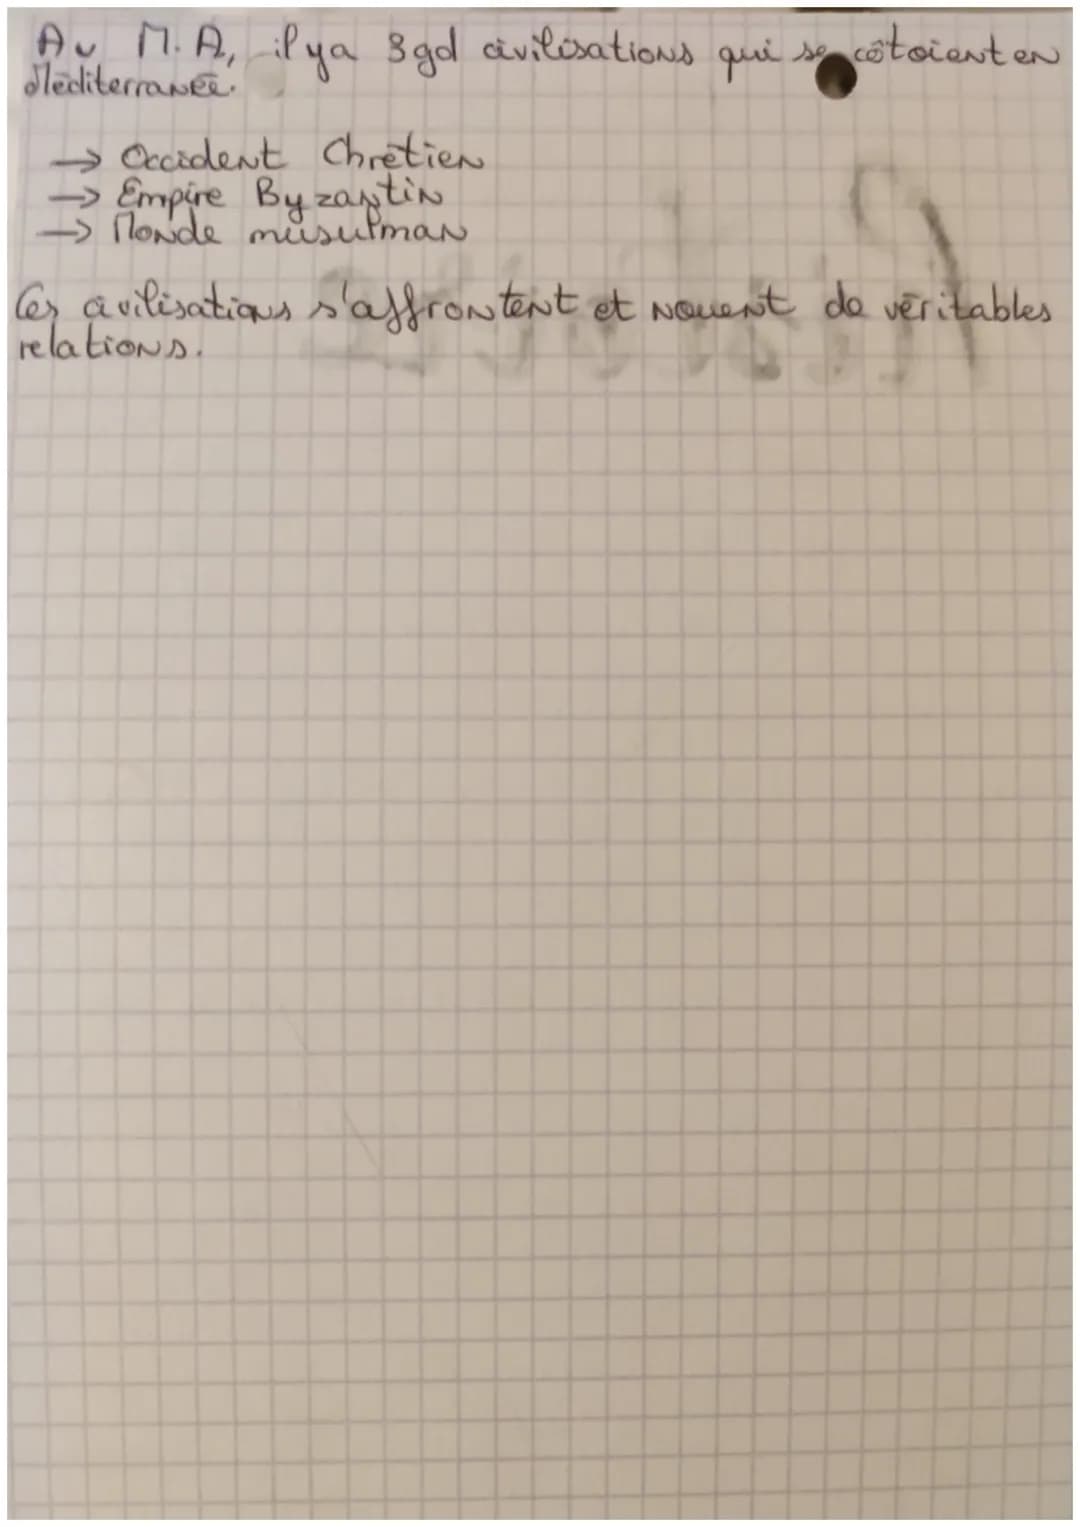 Au M.A, il y a 3 gd civilisations qui se côtoient en
Méditerranée.
→ Occident Chrétien
→ Empire Byzantin
→ Monde musulman
Ces civilisations s'affrontent et nouent de véritables
relations.